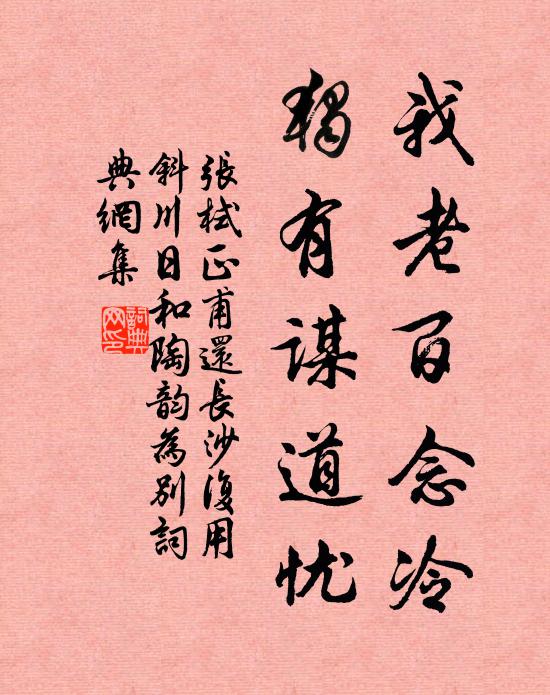 我老百念冷
獨有謀道忧
張栻正甫還長沙復用
斜川日和陶韵為別詞
典網集
詞典网印